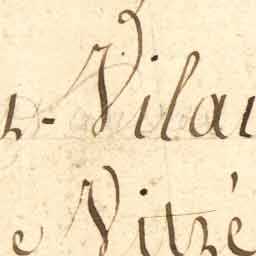 -Vilai
e Vitré